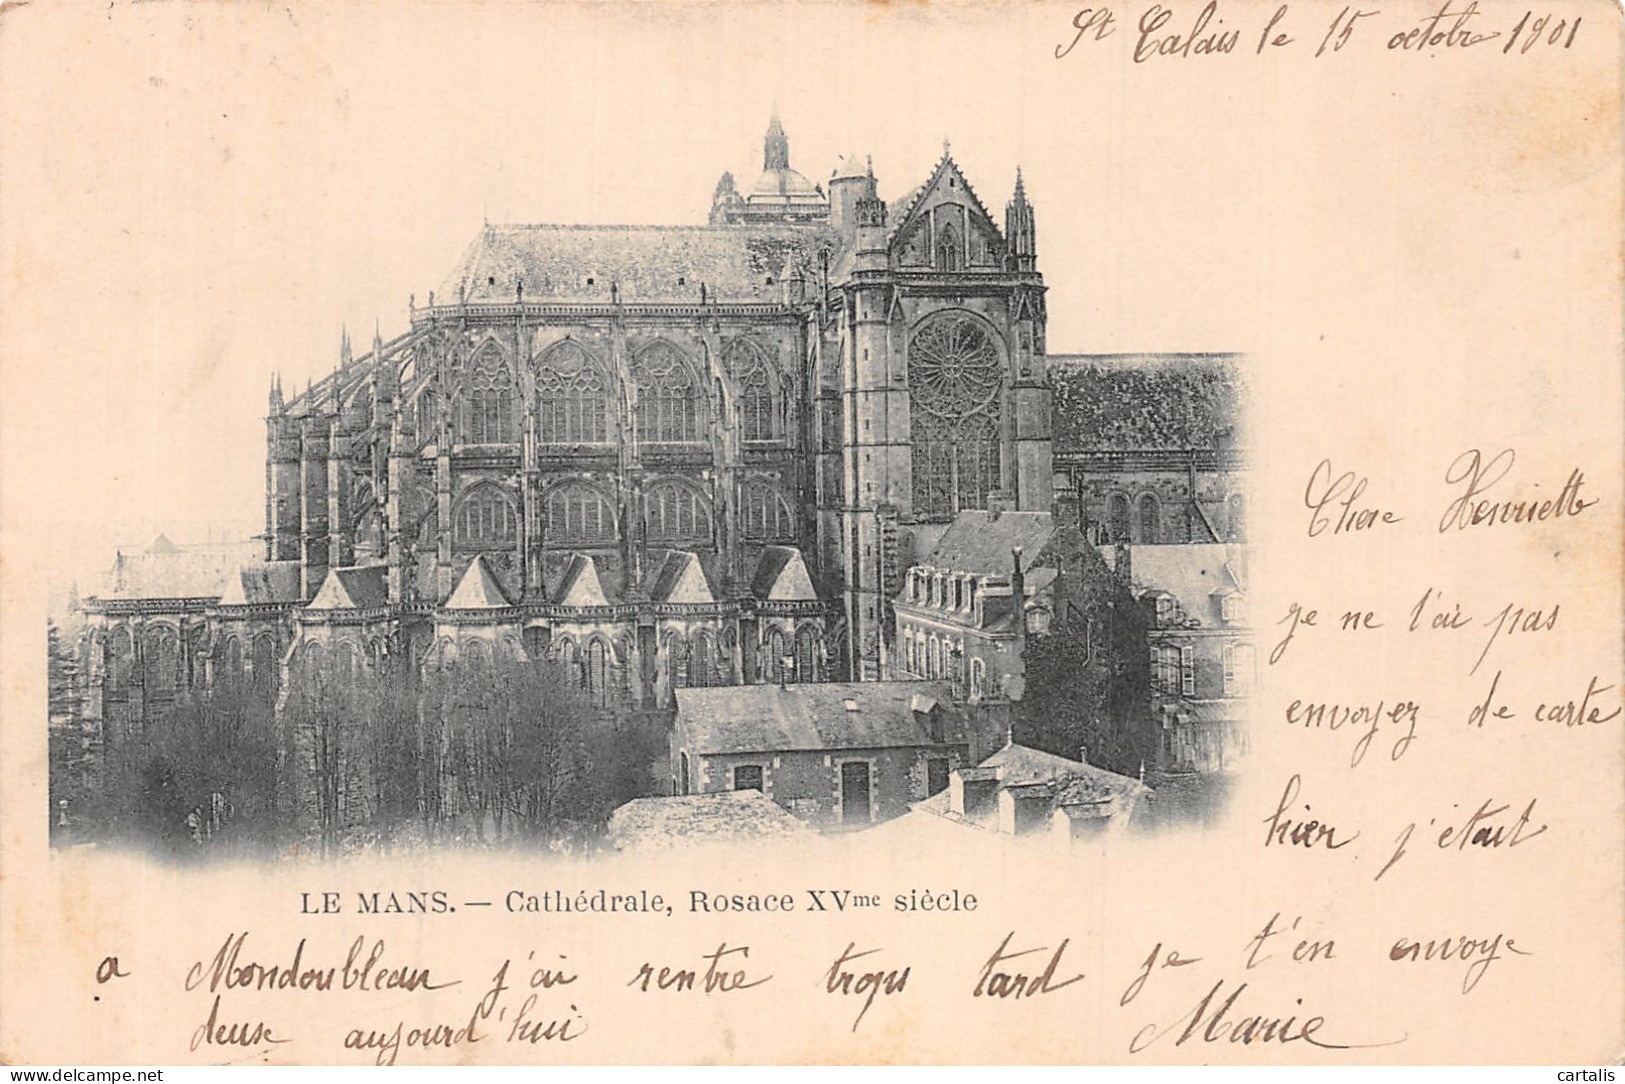 St Calais le 15 octobre 1901
Chere Henriette
je ne t'ai pas
envoyez de carte
hier j'était
LE MANS. — Cathédrale, Rosace XVme siècle
a Mondoubleau j'ai rentré trops tard je t'en envoye
deuse aujourd'hui Marie
delcampe.net
cartalis